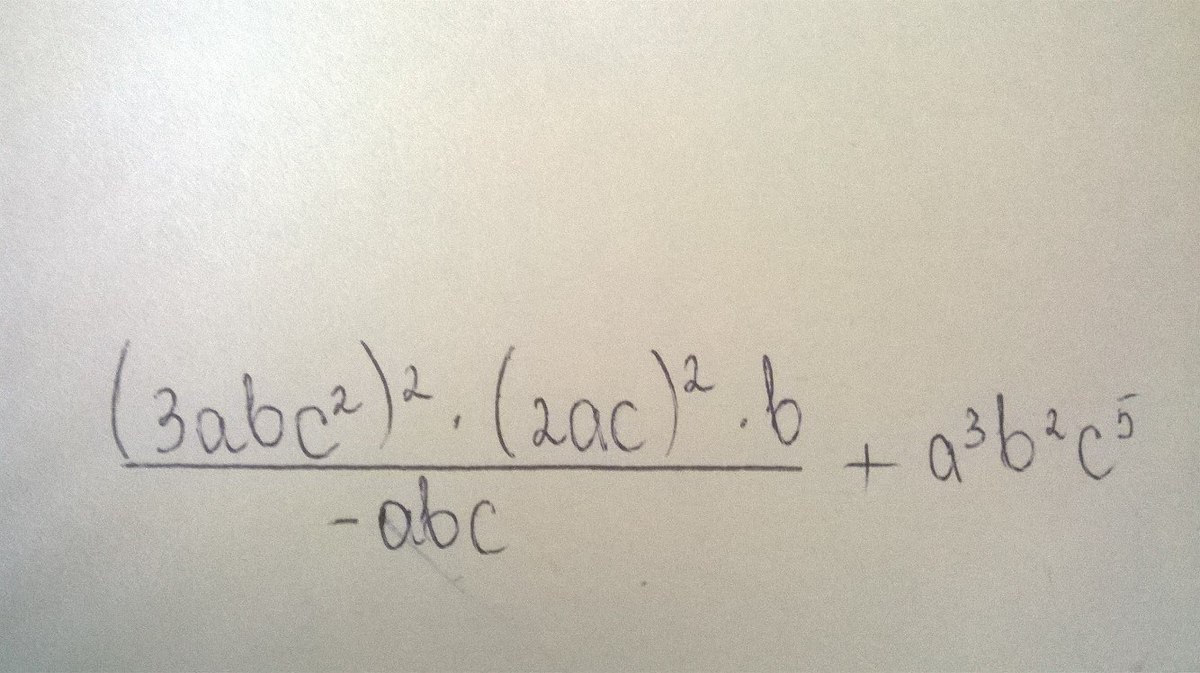 \frac{(3abc^2)^2 \cdot (2ac)^2 \cdot b}{-abc} + a^3b^2c^5